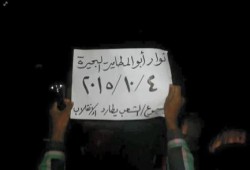 ثوار أبو المطامير-البحيرة
٢٠١٥/١٠/٤
أسبوع/الشعب يطارد الانقلاب